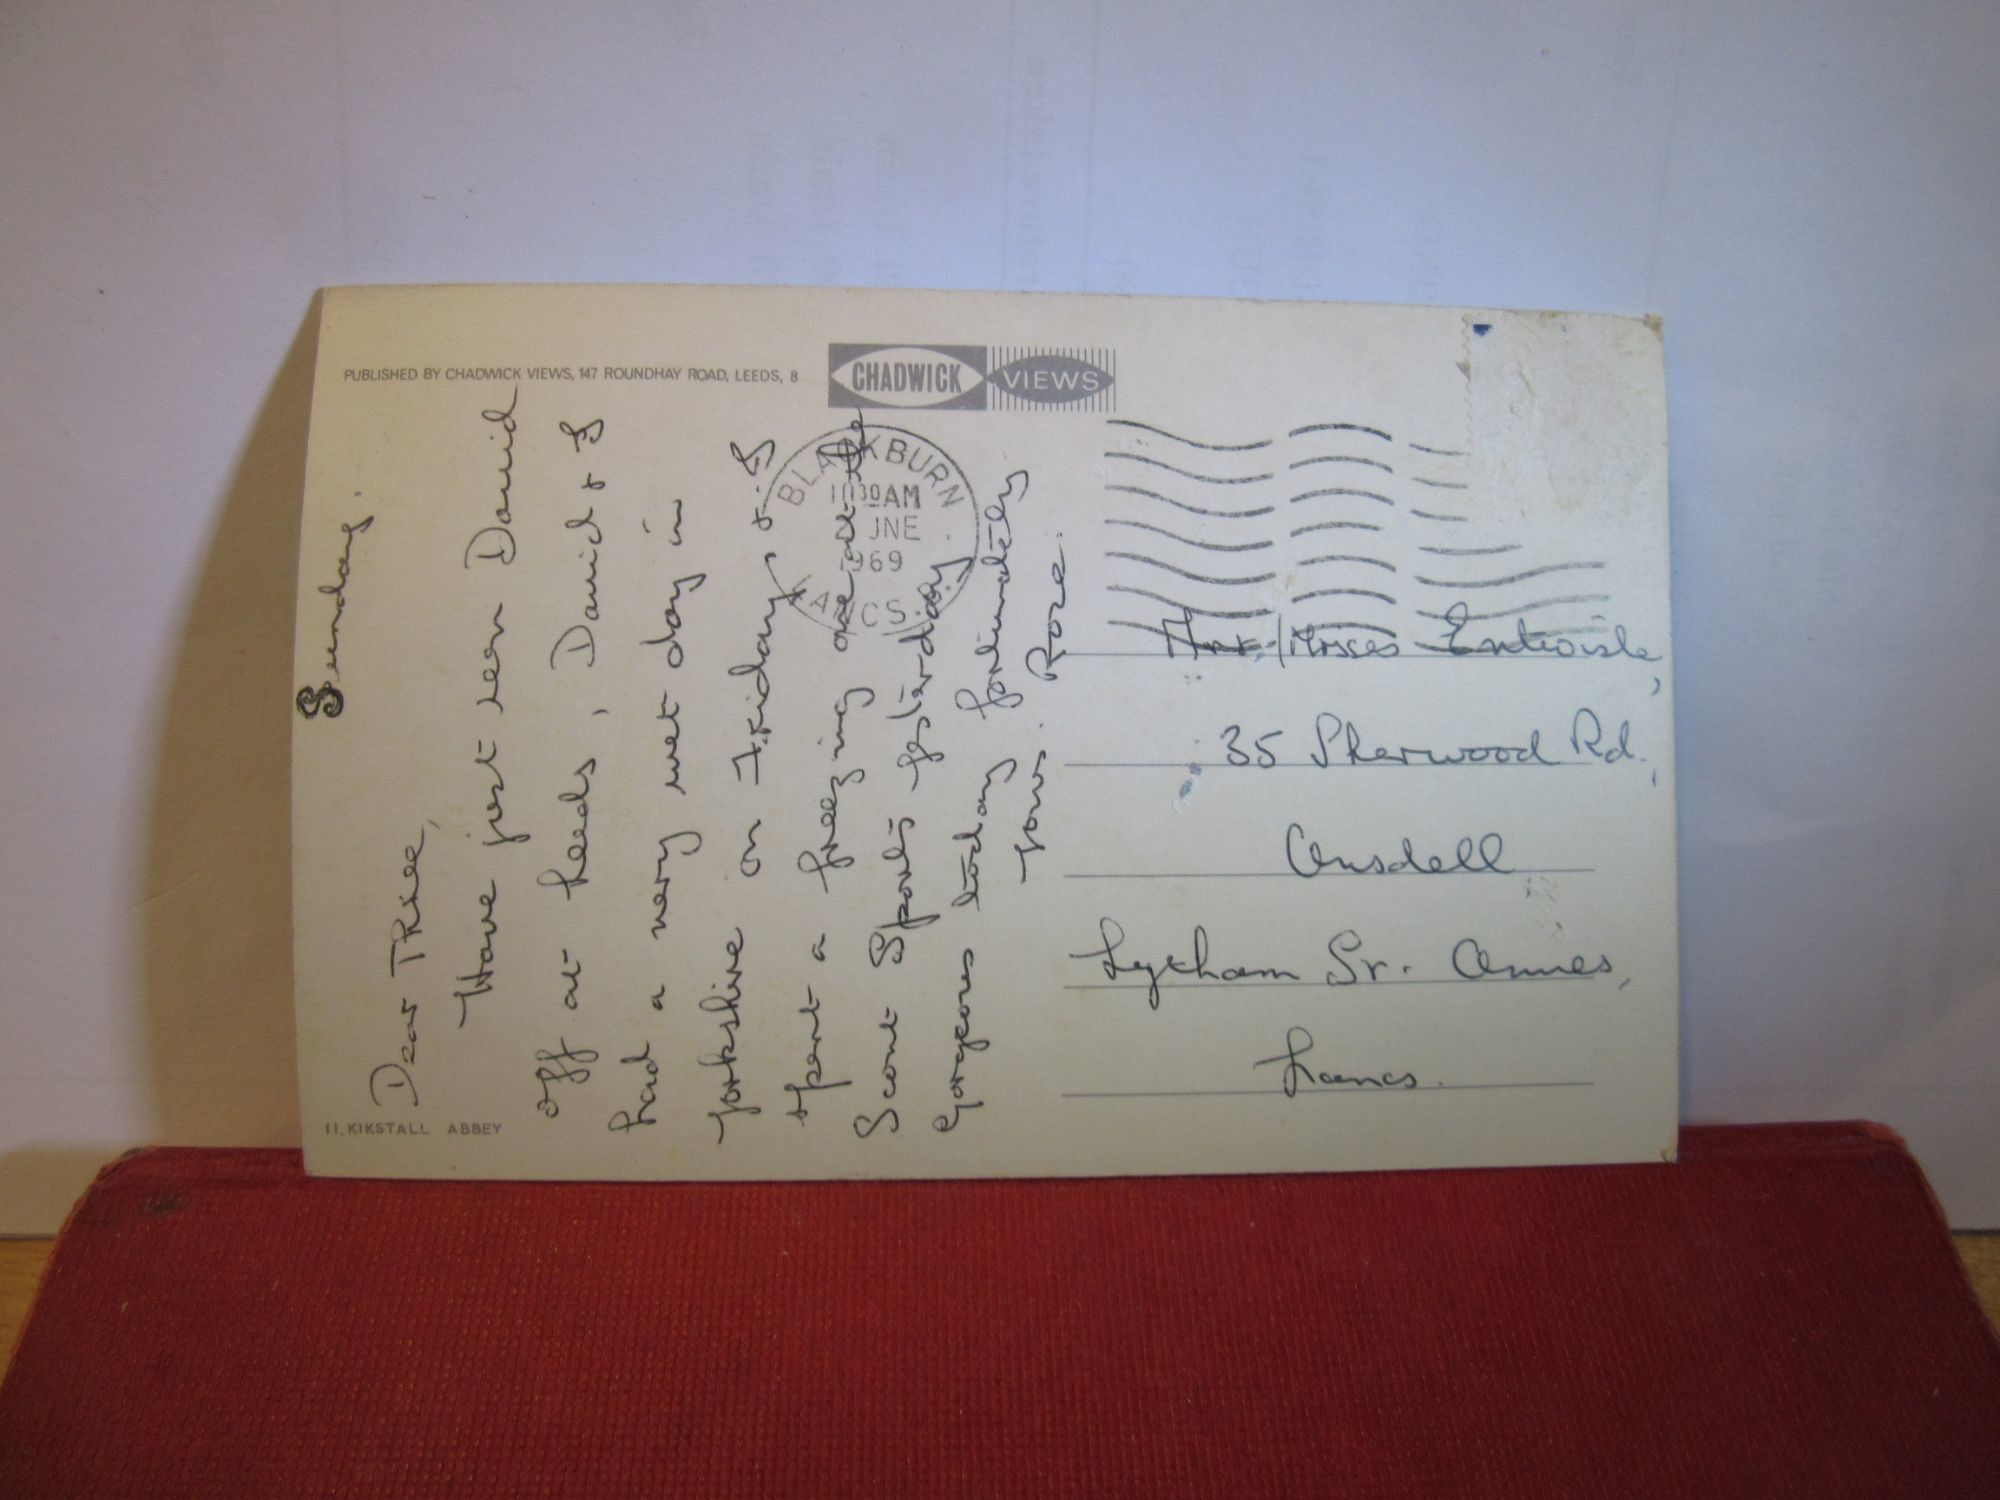 PUBLISHED BY CHADWICK VIEWS, 147 ROUNDHAY ROAD, LEEDS, 8
CHADWICK VIEWS
Sunday.
Dear Three,
Have just seen David
off at Leeds, David & I
had a very wet day in
Yorkshire on Friday, & I
spent a freezing one at the
Scout Sports yesterday
Gorgeous today fortunately
Yours. Rose.
11. KIKSTALL ABBEY
BLACKBURN
1030AM
JNE
1969
LANCS.
Mrs./Misses Entwisle,
35 Sherwood Rd.,
Ansdell
Lytham St. Annes,
Lancs.